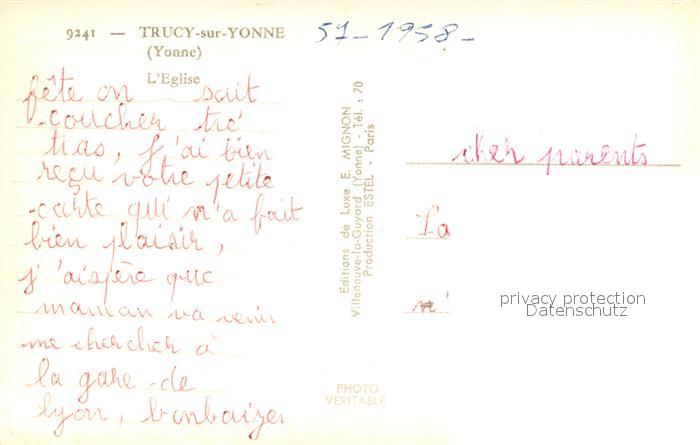 9241 — TRUCY-sur-YONNE
(Yonne)
L'Eglise
51-1958-
fête on sait
coucher tré
tras, j'ai bien
reçu votre petite
carte qui m'a fait
bien plaisir,
j'aispère que
maman va venir
me chercher à
la gare de
lyon, bonbaizer
Editions de Luxe E. MIGNON
Villeneuve-la-Guyard (Yonne) - Tél. : 70
Production ESTEL - Paris
PHOTO
VERITABLE
cher parents
La
privacy protection
Datenschutz